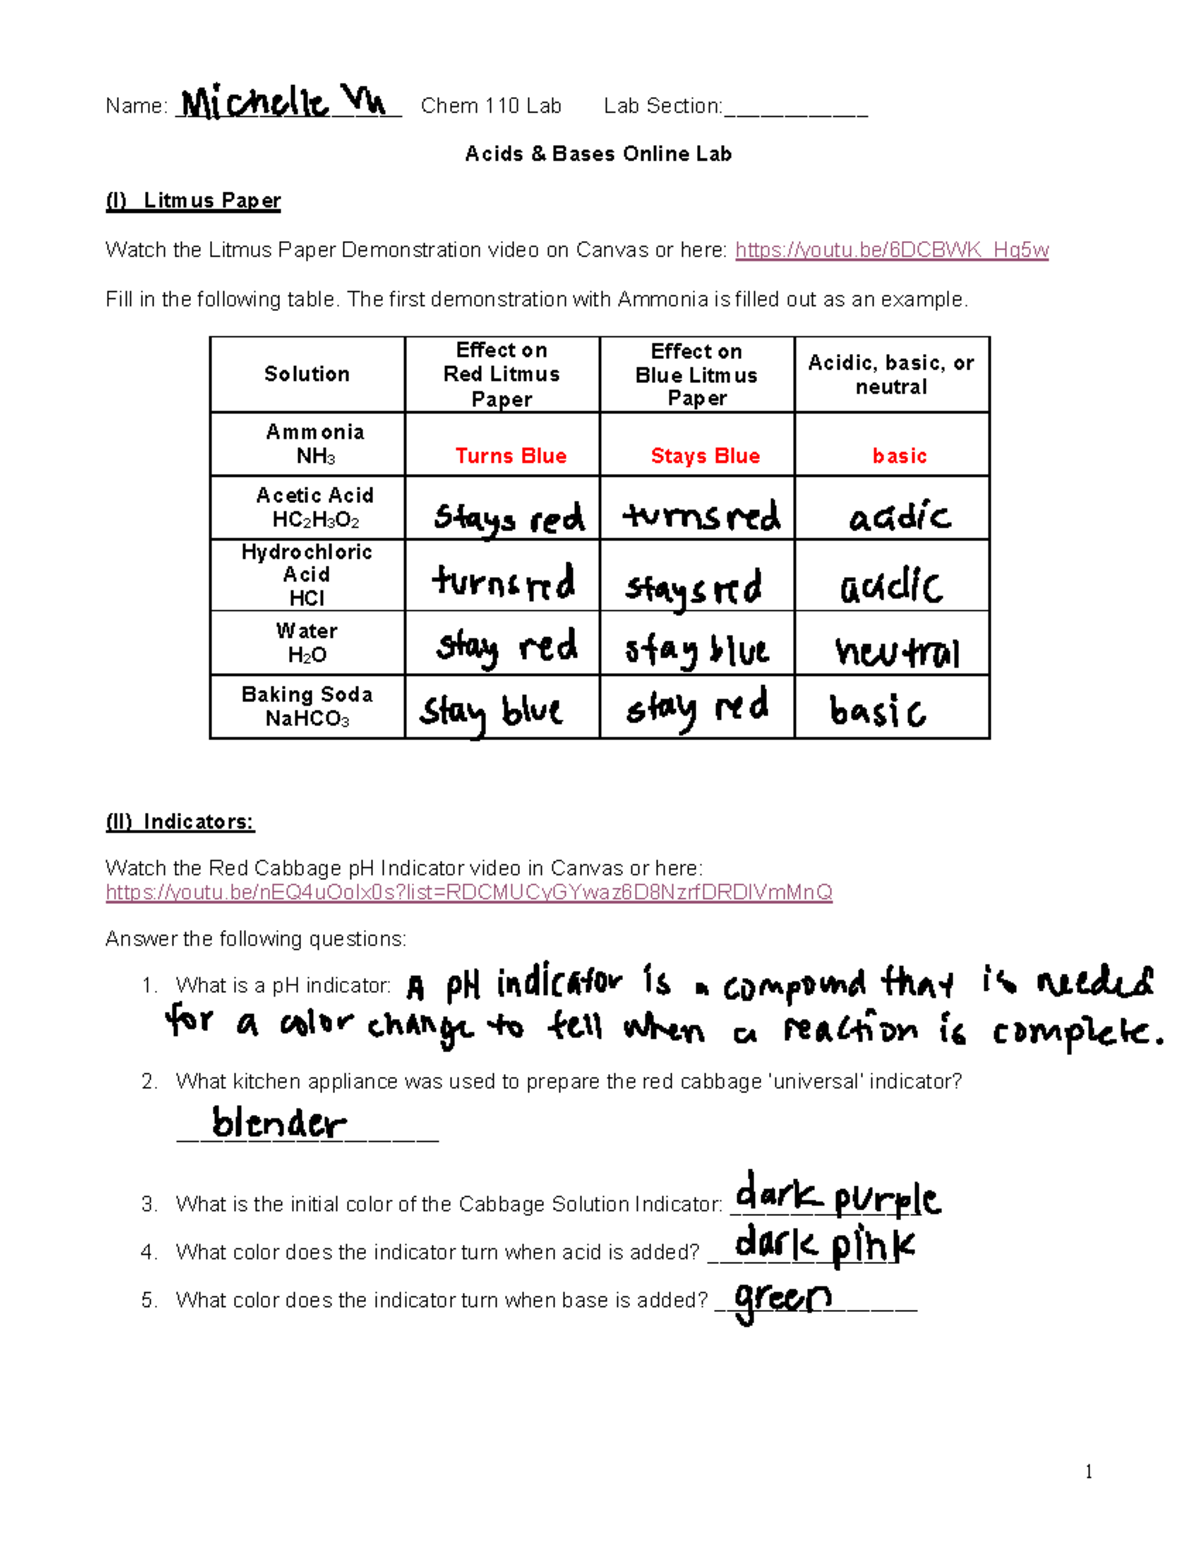 Name: Michelle Vu Chem 110 Lab Lab Section:____________
Acids & Bases Online Lab
(I) Litmus Paper
Watch the Litmus Paper Demonstration video on Canvas or here: https://youtu.be/6DCBWK_Hq5w
Fill in the following table. The first demonstration with Ammonia is filled out as an example.
Solution
Effect on
Red Litmus
Paper
Effect on
Blue Litmus
Paper
Acidic, basic, or
neutral
Ammonia
NH3
Turns Blue
Stays Blue
basic
Acetic Acid
HC2H3O2
stays red
turns red
acidic
Hydrochloric
Acid
HCl
turns red
stays red
acidic
Water
H2O
stay red
stay blue
neutral
Baking Soda
NaHCO3
stay blue
stay red
basic
(II) Indicators:
Watch the Red Cabbage pH Indicator video in Canvas or here:
https://youtu.be/nEQ4uOoIx0s?list=RDCMUCyGYwaz6D8NzrfDRDIVmMnQ
Answer the following questions:
1. What is a pH indicator: A pH indicator is a compound that is needed
for a color change to tell when a reaction is complete.
2. What kitchen appliance was used to prepare the red cabbage 'universal' indicator?
blender
3. What is the initial color of the Cabbage Solution Indicator: dark purple
4. What color does the indicator turn when acid is added? dark pink
5. What color does the indicator turn when base is added? green
1